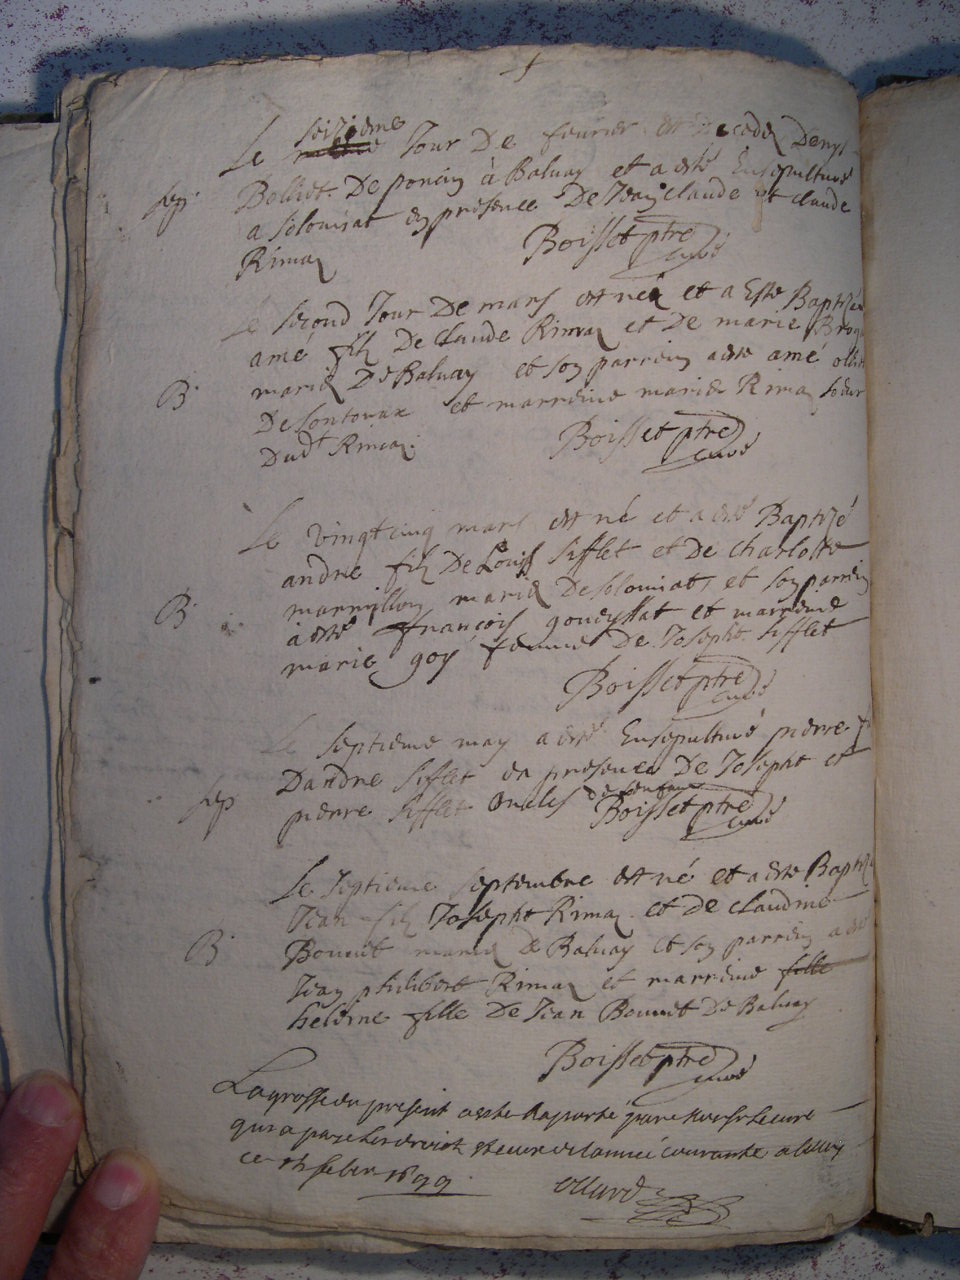 seizieme
Le jour De fevrier est decedé Denys
sep Bolliet De poncin à Baluay et a esté Ensepulturé
a solomiat en presence De Jean claude et claude
Rimaz Boisset ptre curé
Le second Jour De mars est née et a Esté Baptizé
amé filz De claude Rimaz et De marie
B mariez De Baluay et son parrein a esté amé
De sontonax et marreine marie Rimaz soeur
Dudt Rimaz. Boisset ptre curé
Le vingt cinq mars est né et a esté Baptizé
andre filz De Louis sifflet et De charlotte
marmillon mariez De solomiat, et son parrein
B à esté françois goueyffat et marreine
marie goy femme De Joseph sifflet
Boisset ptre curé
Le septieme may a esté Ensepulturé pierre fz
D'andre sifflet en presence De Josepht et
sep pierre sifflet oncles
Boisset ptre curé
Le septieme septembre est né et a esté Baptizé
Jean filz Josepht Rimaz et De claudine
B Bonnet mariez De Baluay et son parrein a esté
Jean philibert Rimaz et marreine fille
heleine fille De Jean Bonnet De Baluay
Boisset ptre curé
La grosse du present a esté Raporté par le curé
qui a payé les droict de l'année courante a
ce 1699